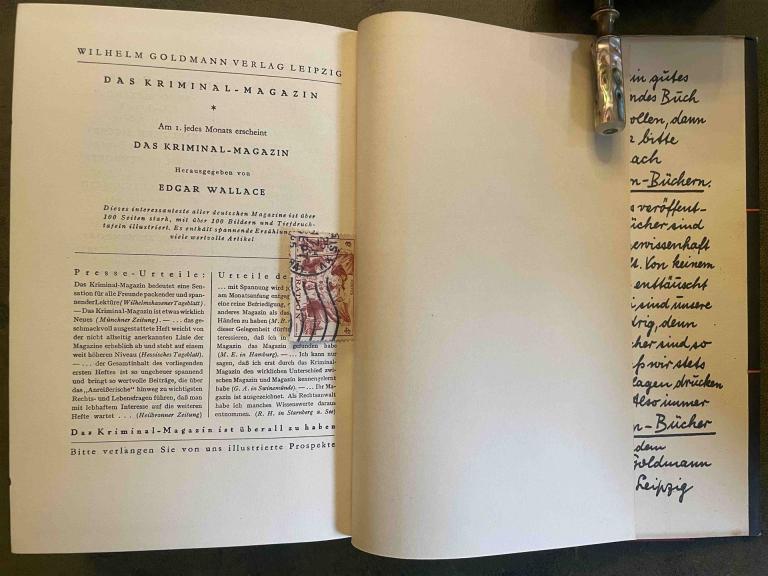 WILHELM GOLDMANN VERLAG LEIPZIG
DAS KRIMINAL-MAGAZIN
*
Am 1. jedes Monats erscheint
DAS KRIMINAL-MAGAZIN
Herausgegeben von
EDGAR WALLACE
Dieses interessanteste aller deutschen Magazine ist über
100 Seiten stark, mit über 100 Bildern und Tiefdruck-
tafeln illustriert. Es enthält spannende Erzählung
viele wertvolle Artikel
Presse-Urteile:
Das Kriminal-Magazin bedeutet eine Sen-
sation für alle Freunde packender und span-
nender Lektüre (Wilhelmshavener Tageblatt).
— Das Kriminal-Magazin ist etwas wirklich
Neues (Münchner Zeitung). — . . . das ge-
schmackvoll ausgestattete Heft weicht von
der nicht allseitig anerkannten Linie der
Magazine erheblich ab und steht auf einem
weit höheren Niveau (Hessisches Tageblatt).
— . . . der Gesamtinhalt des vorliegenden
ersten Heftes ist so ungeheuer spannend
und bringt so wertvolle Beiträge, die über
das „Anreißerische“ hinweg zu wichtigsten
Rechts- und Lebensfragen führen, daß man
mit lebhaftem Interesse auf die weiteren
Hefte wartet . . . (Heilbronner Zeitung)
Urteile de
. . . mit Spannung wird j
am Monatsumfang entgeg
eine reine Befriedigung,
anderes Magazin als das
Händen zu haben (M. B.
dieser Gelegenheit dürft
teressieren, daß ich in
Magazin das Magazin gefunden habe
(M. E. in Hamburg). — . . . Ich kann nur
sagen, daß ich erst durch das Kriminal-
Magazin den wirklichen Unterschied zwi-
schen Magazin und Magazin kennengelernt
habe (G. A. in Swinemünde). — . . . Ihr Ma-
gazin ist ausgezeichnet. Als Rechtsanwalt
habe ich manches Wissenswerte daraus
entnommen. (R. H. in Starnberg a. See)
Das Kriminal-Magazin ist überall zu haben
Bitte verlangen Sie von uns illustrierte Prospekte
in gutes
ndes Buch
ollen, dann
bitte
ach
n-Büchern.
s veröffent-
ücher sind
ewissenhaft
t. Von keinem
enttäuscht
i sind unsere
drig, denn
cher sind so
ß wir stets
lagen drucken
Also immer
n-Bücher
dem
Goldmann
Leipzig